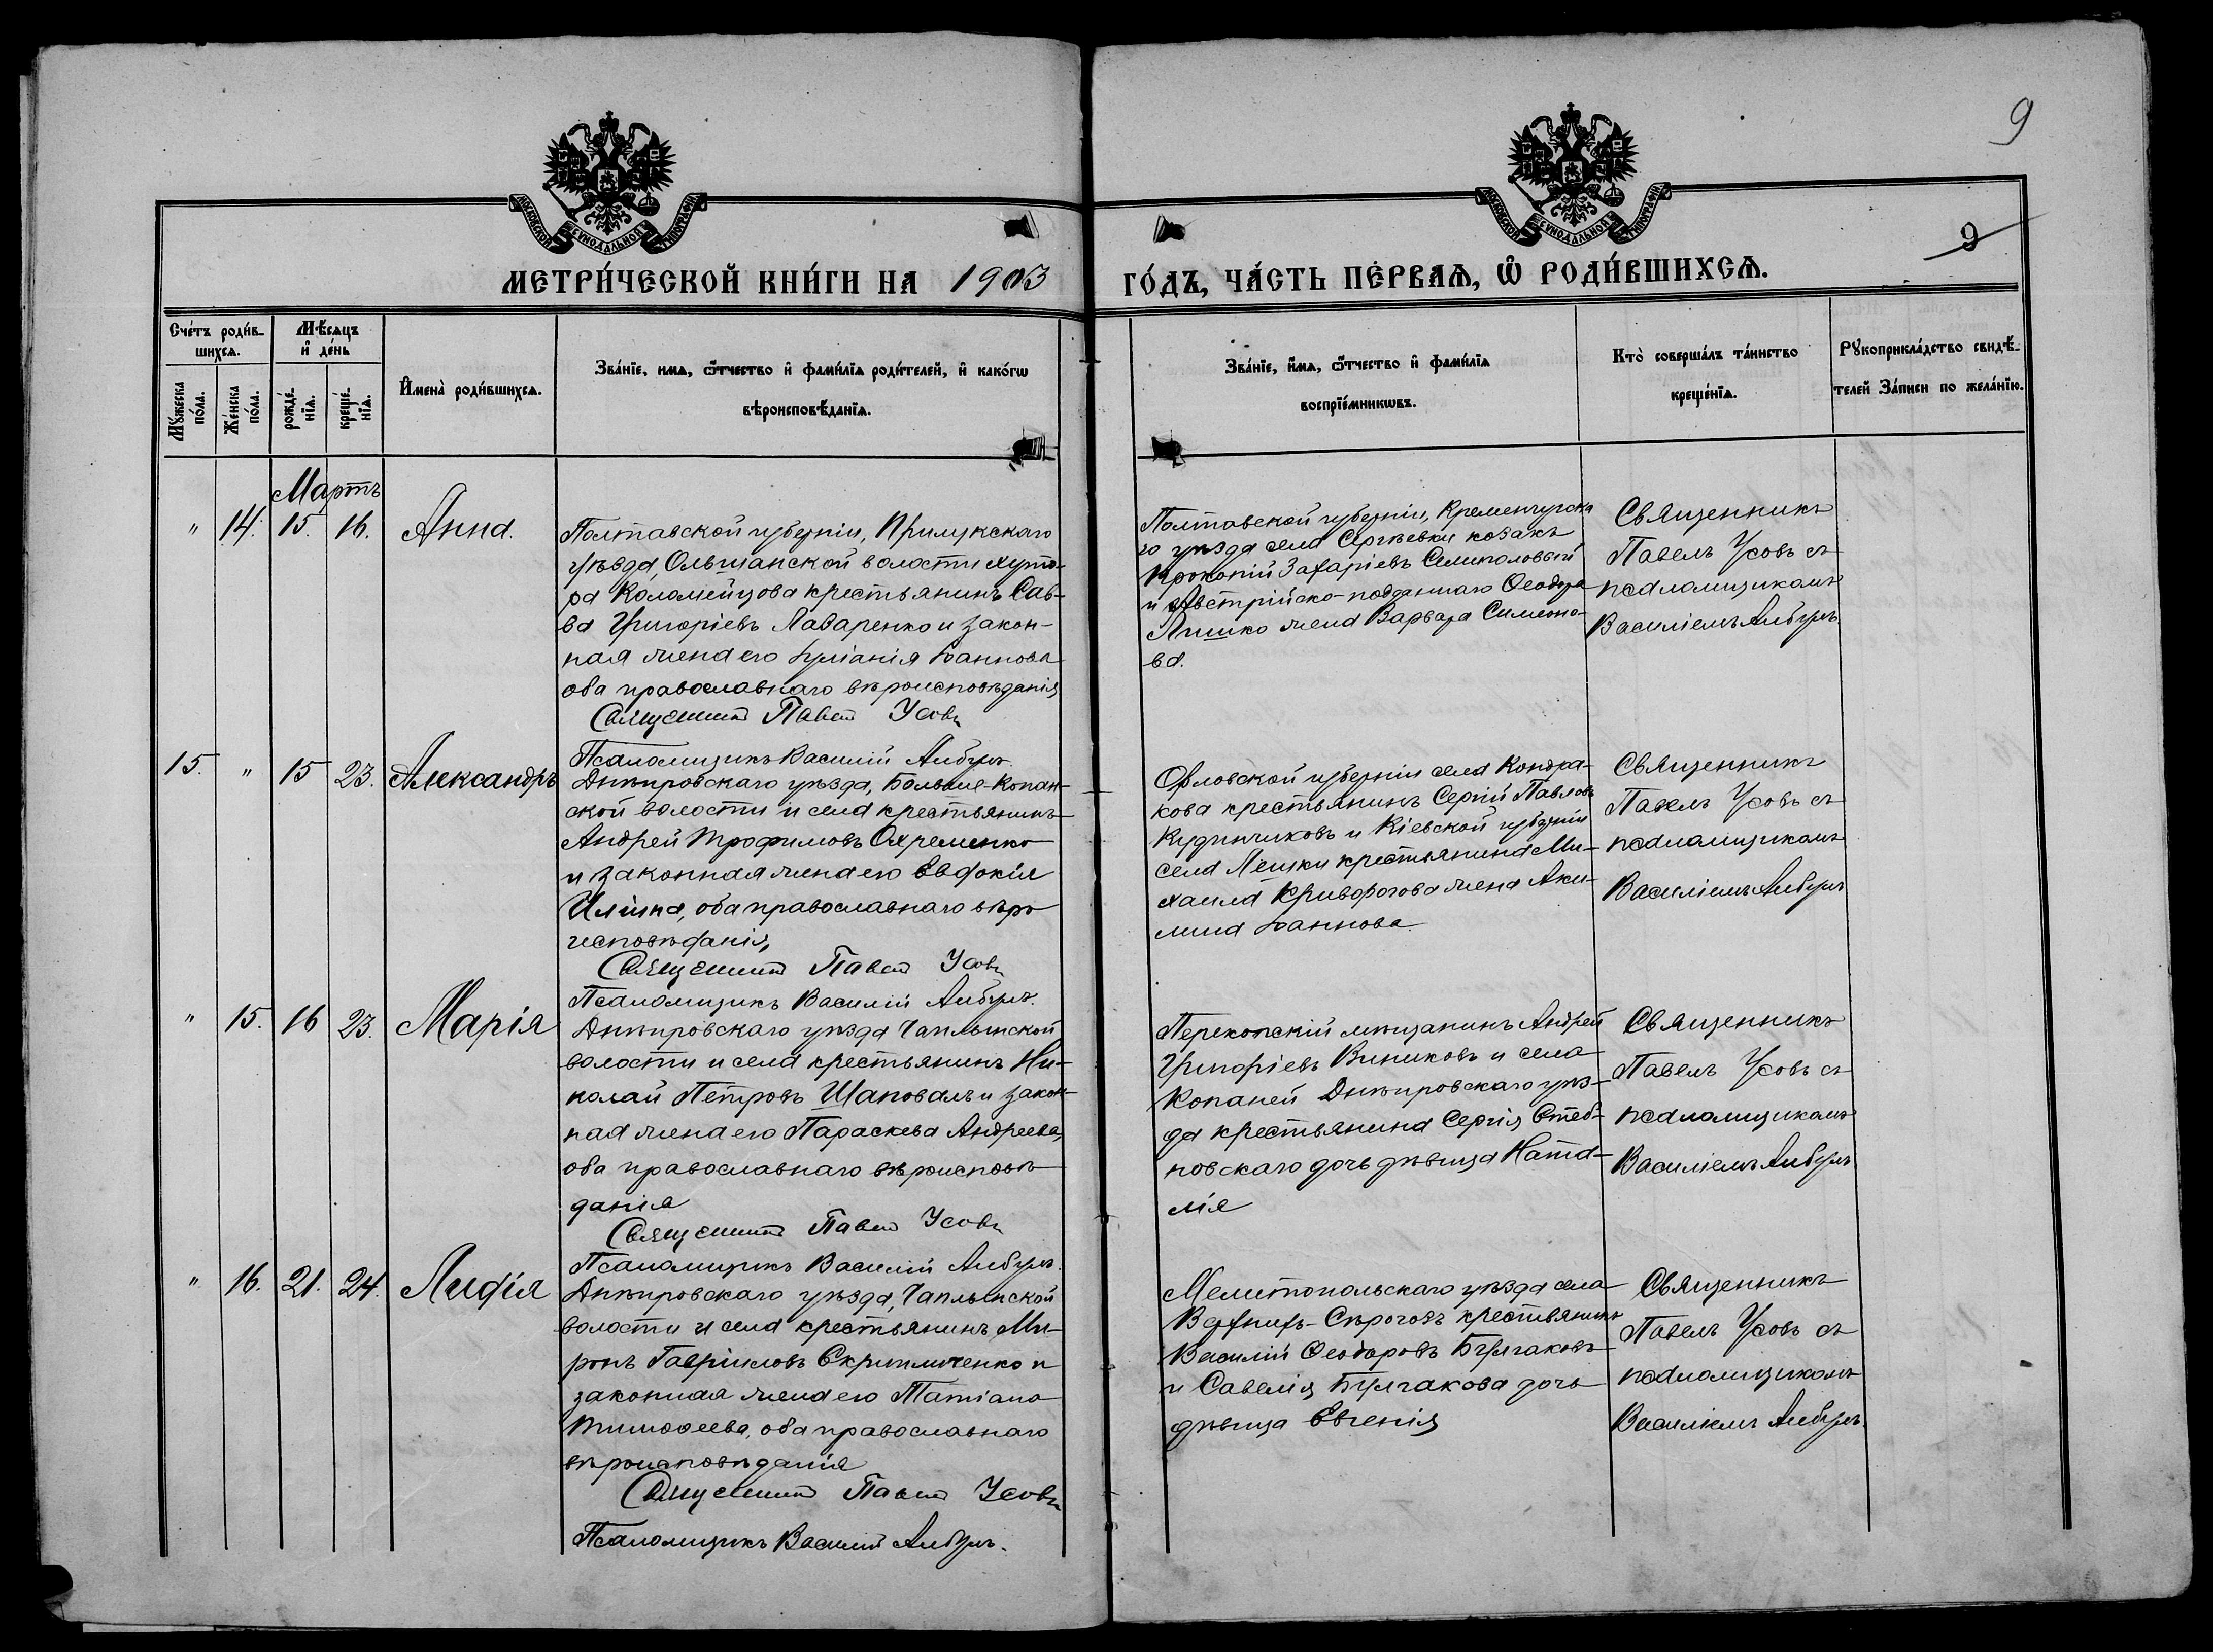 9
МОСКОВСКОЙ СѴНОДАЛЬНОЙ ТИПОГРАФІИ
МОСКОВСКОЙ СѴНОДАЛЬНОЙ ТИПОГРАФІИ
9
МЕТРИ́ЧЕСКОЙ КНИ́ГИ НА 1903
ГО́ДЪ, ЧА́СТЬ ПЕ́РВАѦ, Ѿ РОДИ́ВШИХСѦ.
Сче́тъ роди́в-
шихсѧ.
Мѣ́сѧцъ
и҆ де́нь
Мꙋ́жеска
по́ла.
Же́нска
по́ла.
рожде́-
нїѧ.
креще́-
нїѧ.
И҆мена̀ роди́вшихсѧ.
Зва́нїе, имѧ, ѻ҆́тчество и҆ фами́лїѧ роди́телей, и҆ како́гѡ
вѣроисповѣ́данїѧ.
Зва́нїе, и҆́мѧ, ѻ҆́тчество и҆ фами́лїѧ
воспрїе́мникѡвъ.
Кто̀ соверша́лъ та́инство
креще́нїѧ.
Рꙋкоприкла́дство свидѣ́-
телей За́писи по жела́нїю.
Мартъ
" 14. 15. 16. Анна.
Полтавской губерніи, Прилукскаго
уѣзда, Ольшанской волости хуто-
ра Коломейцова крестьянинъ Сав-
ва Григоріевъ Лазаренко и закон-
ная жена его Іуліанія Іоаннова
оба православнаго вѣроисповѣданія
Священникъ Павелъ Усовъ
Псаломщикъ Василій
Полтавской губерніи, Кременчугска
го уѣзда села Сергѣевки козакъ
Прокопій Захаріевъ
и Австрійско-подданнаго Ѳеодора
Ляшко жена Варвара Симеоно-
ва.
Священникъ
Павелъ Усовъ съ
псаломщикомъ
Василіемъ
15. " 15 23. Александръ
Днѣпровскаго уѣзда, Больше-Копан-
ской волости и села крестьянинъ
Андрей Трофимовъ Охременко
и законная жена его Евдокія
Иліина, оба православнаго вѣро
исповѣданія,
Священникъ Павелъ Усовъ
Псаломщикъ Василій
Орловской губерніи села Кондра-
кова крестьянинъ Сергій Павловъ
Кудинчиковъ и Кіевской губерніи
села Лешки крестьянина Ми-
хаила Криворогова жена Аки-
лина Іоаннова
Священникъ
Павелъ Усовъ съ
псаломщикомъ
Василіемъ
" 15. 16 23. Марія
Днѣпровскаго уѣзда Чаплынской
волости и села крестьянинъ Ни-
колай Петровъ Шаповалъ и закон-
ная жена его Параскева Андреева,
оба православнаго вѣроисповѣ-
данія
Священникъ Павелъ Усовъ
Псаломщикъ Василій
Перекопскій мѣщанинъ Андрей
Григоріевъ Виниковъ и села
Копаней Днѣпровскаго уѣз-
да крестьянина Сергія Стеб-
новскаго дочь дѣвица Ната-
лія
Священникъ
Павелъ Усовъ съ
псаломщикомъ
Василіемъ
" 16. 21. 24. Лидія
Днѣпровскаго уѣзда, Чаплынской
волости и села крестьянинъ Ми-
ронъ Гавріиловъ Скрипниченко и
законная жена его Татіана
Тимоѳеева, оба православнаго
вѣроисповѣданія
Священникъ Павелъ Усовъ
Псаломщикъ Василій
Мелитопольскаго уѣзда села
Верхнихъ-Сѣрогозъ крестьянинъ
Василій Ѳеодоровъ Булгаковъ
и Савелія Булгакова дочь
дѣвица Евгенія
Священникъ
Павелъ Усовъ съ
псаломщикомъ
Василіемъ